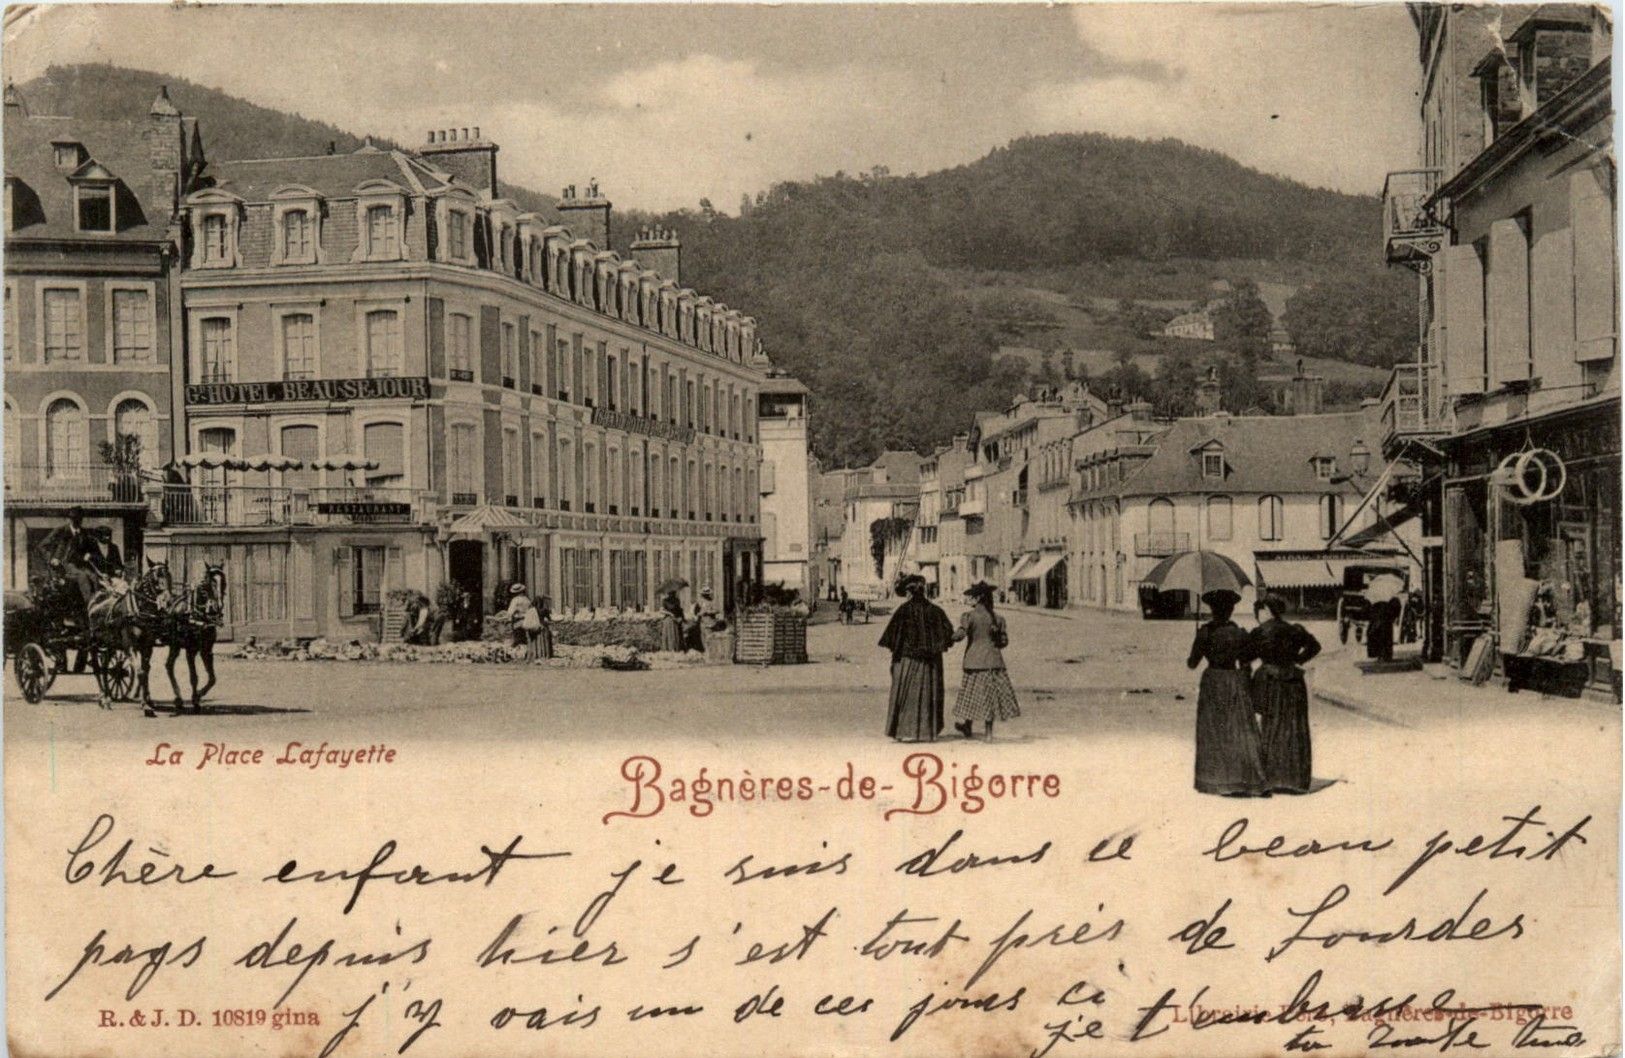 Gd HOTEL BEAU-SEJOUR
RESTAURANT
La Place Lafayette
Bagnères-de-Bigorre
Chère enfant je suis dans ce beau petit
pays depuis hier s'est tout près de Lourdes
j'y vais un de ces jours ci
je t'embrasse
R. & J. D. 10819 gina
Librairie Bagnères-de-Bigorre
ta